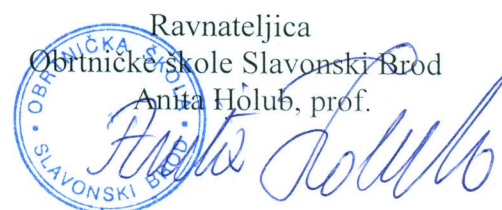 Ravnateljica
Obrtničke škole Slavonski Brod
Anita Holub, prof.
OBRTNIČKA ŠKOLA
SLAVONSKI BROD
Anita Holub